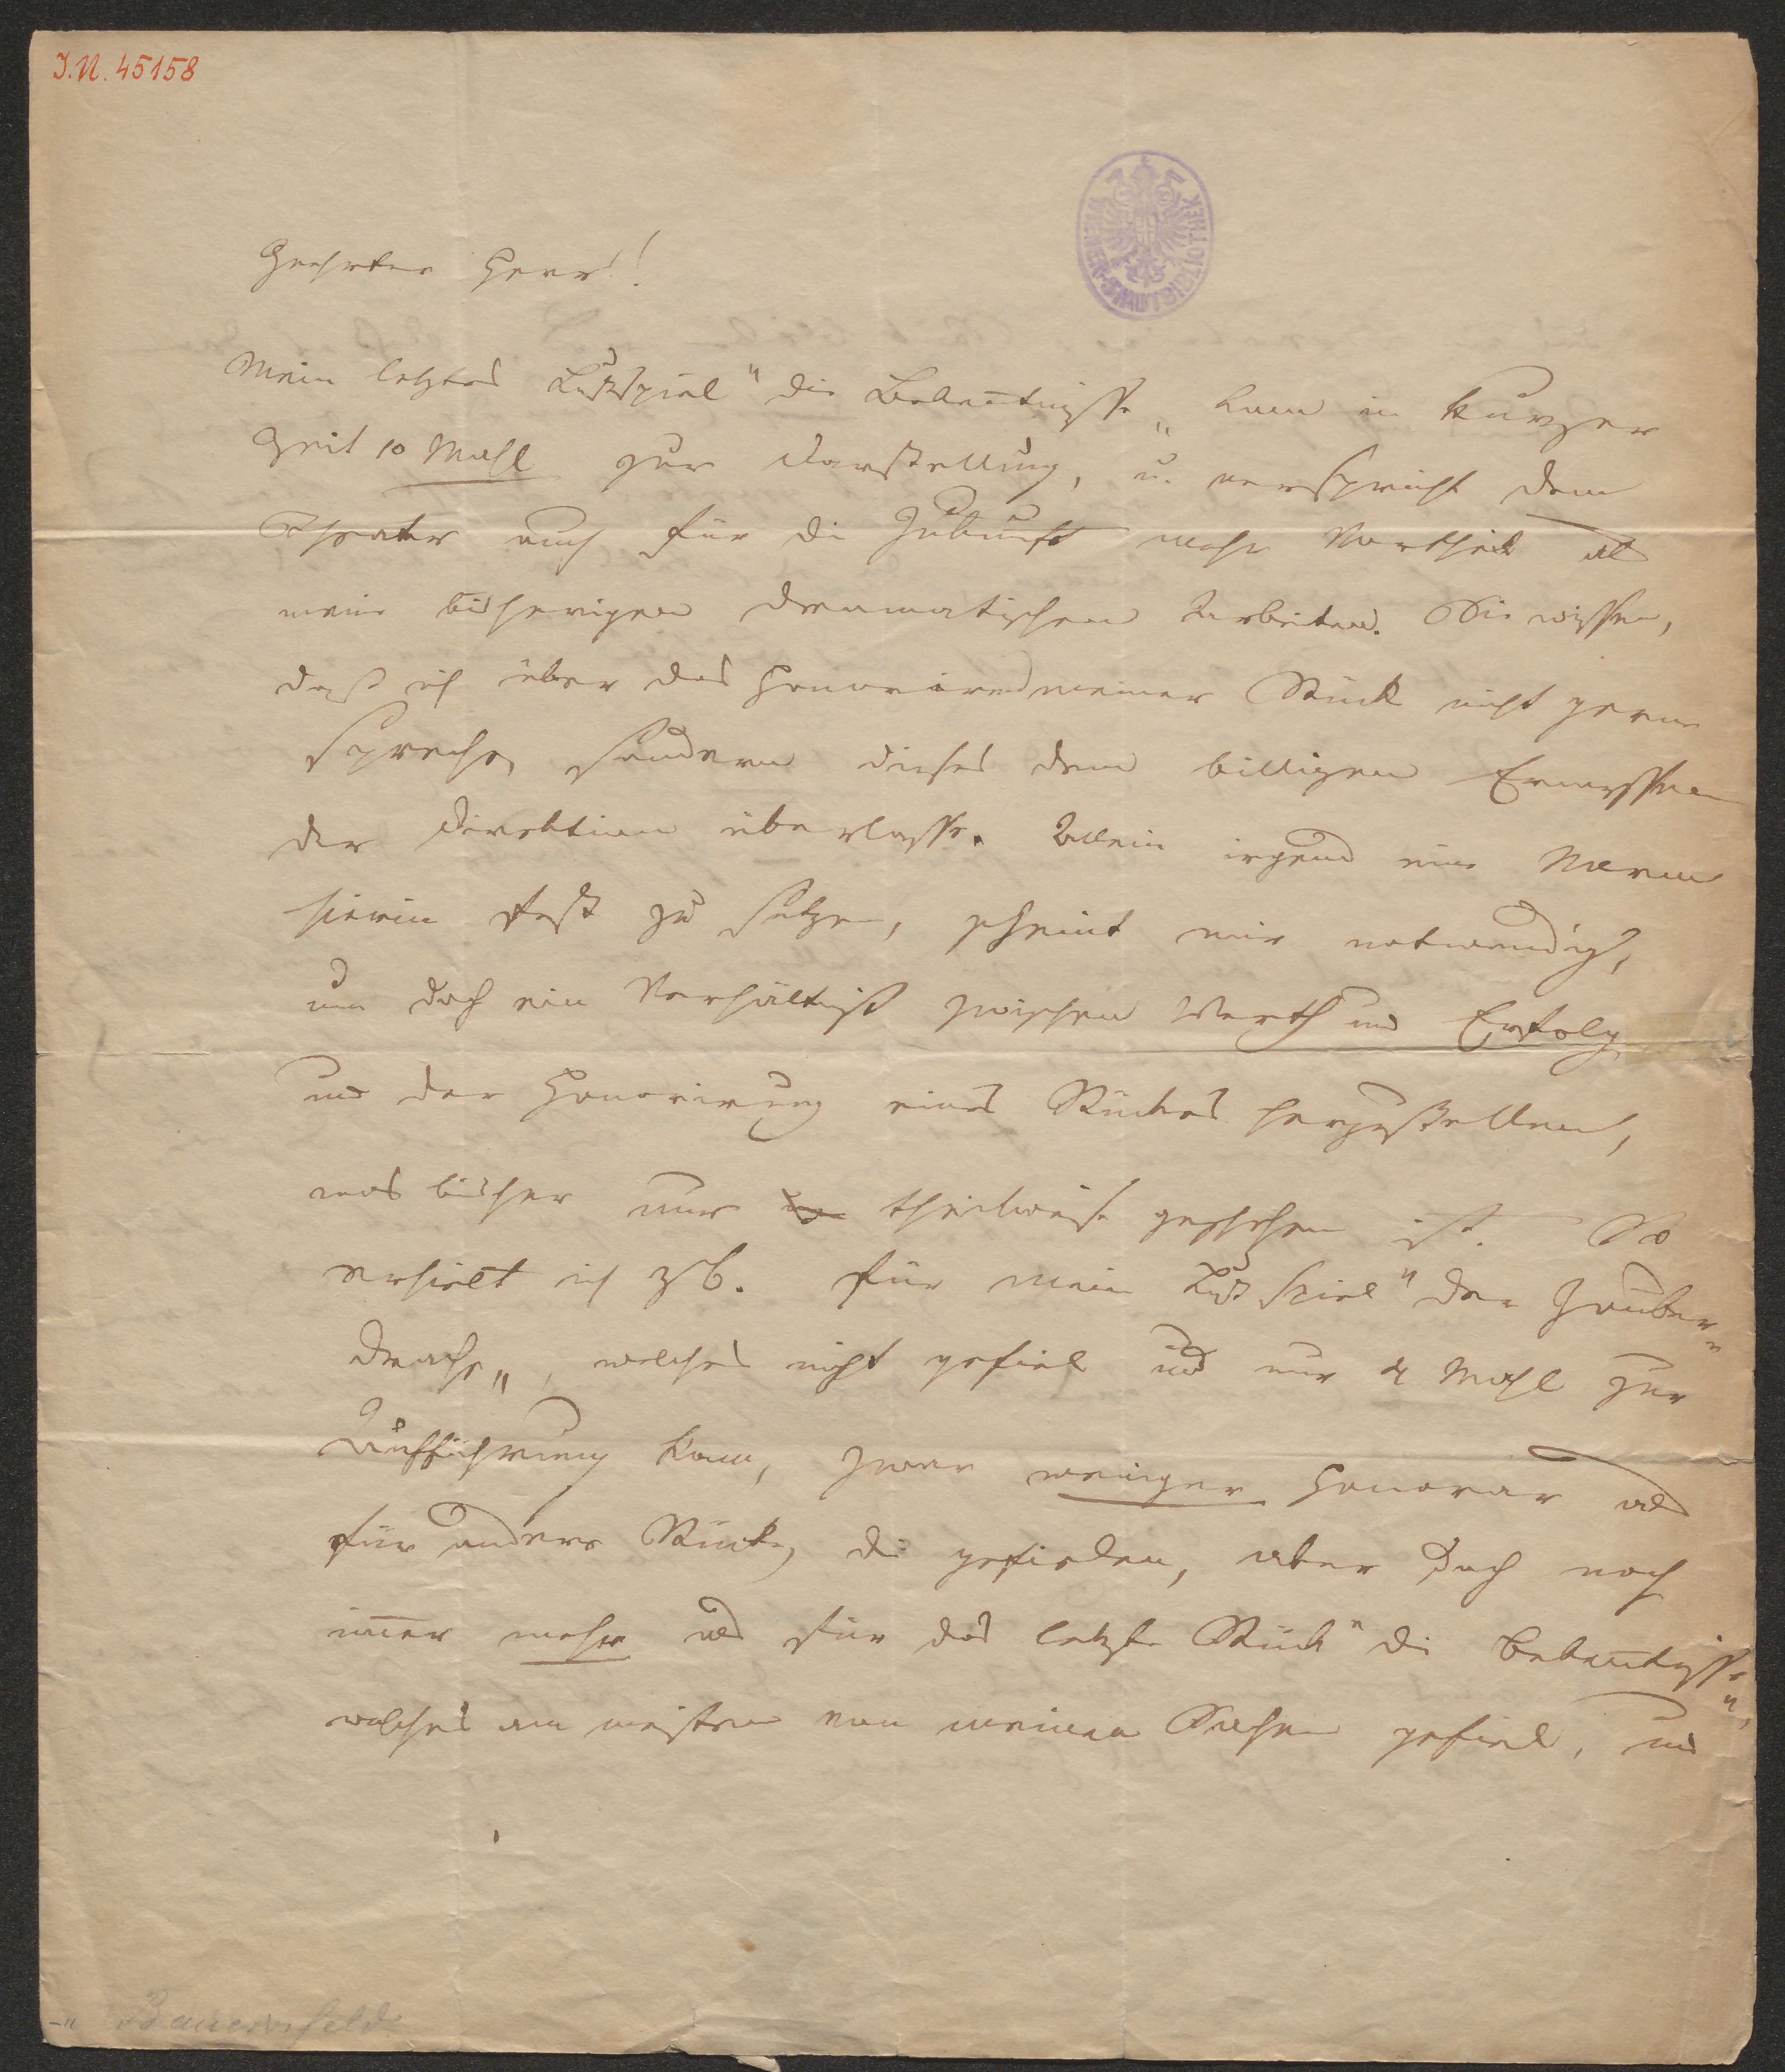 I.N. 45158
WIENER STADTBIBLIOTHEK
Geehrter Herr!
Mein letztes Lustspiel "die Bekenntnisse„ kam in kurzer
Zeit 10 Mahl zur Darstellung, u. verspricht dem
Theater auch für die Zukunft mehr Vortheil als
meine bisherigen dramatischen Arbeiten. Sie wissen,
daß ich über das Honoriren meiner Stücke nicht gerne
spreche, sondern dieses dem billigen Ermessen
der Direktion überlasse. Allein irgend eine Norm
hierin fest zu setzen, scheint mir notwendig,
um doch ein Verhältniß zwischen Werth und Erfolg
und der Honorirung eines Stückes herzustellen,
was bisher nur theilweise geschehen ist. So
erhielt ich z.b. für mein Lustspiel "der Zauber-
drache„, welches nicht gefiel und nur 4 Mahl zur
Aufführung kam, zwar weniger Honorar als
für andere Stücke, die gefielen, aber doch noch
im̄er mehr als für das letzte Stück "die Beken̄tnisse",
welches am meisten von meinen Sachen gefiel, und
Bauernfeld